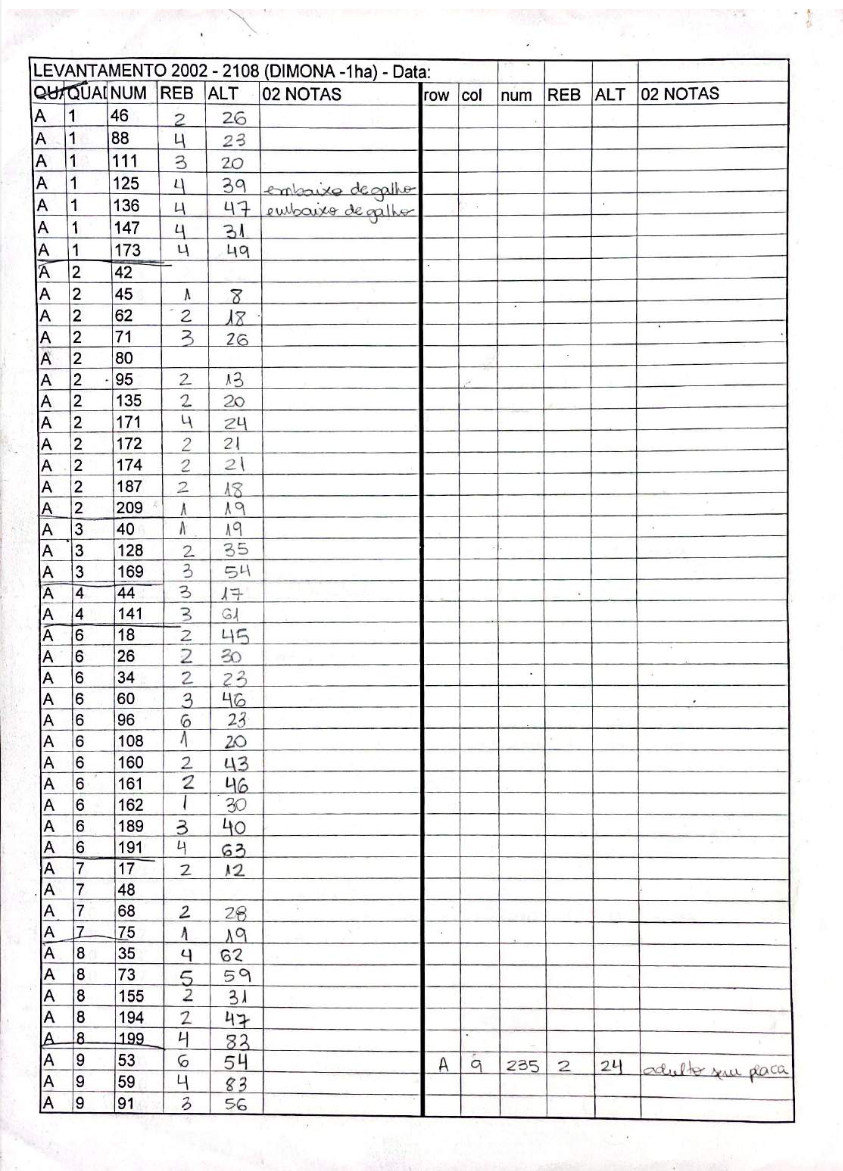 LEVANTAMENTO 2002 - 2108 (DIMONA -1ha) - Data:
QUA QUAD NUM REB ALT 02 NOTAS row col num REB ALT 02 NOTAS
A 1 46 2 26
A 1 88 4 23
A 1 111 3 20
A 1 125 4 39 embaixo de galho
A 1 136 4 47 embaixo de galho
A 1 147 4 31
A 1 173 4 49
A 2 42
A 2 45 1 8
A 2 62 2 18
A 2 71 3 26
A 2 80
A 2 95 2 13
A 2 135 2 20
A 2 171 4 24
A 2 172 2 21
A 2 174 2 21
A 2 187 2 18
A 2 209 1 19
A 3 40 1 19
A 3 128 2 35
A 3 169 3 54
A 4 44 3 17
A 4 141 3 61
A 6 18 2 45
A 6 26 2 30
A 6 34 2 23
A 6 60 3 46
A 6 96 6 23
A 6 108 1 20
A 6 160 2 43
A 6 161 2 46
A 6 162 1 30
A 6 189 3 40
A 6 191 4 63
A 7 17 2 12
A 7 48
A 7 68 2 28
A 7 75 1 19
A 8 35 4 62
A 8 73 5 59
A 8 155 2 31
A 8 194 2 47
A 8 199 4 83
A 9 53 6 54 A 9 235 2 24 adulto sem placa
A 9 59 4 83
A 9 91 3 56